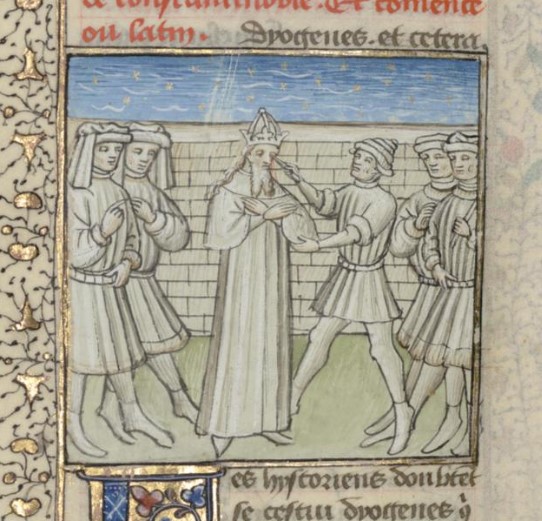 de constantinoble. Et comence
ou latin. Dyogenes. et cetera.
Les hystoriens doubtet
se cestui dyogenes q̇